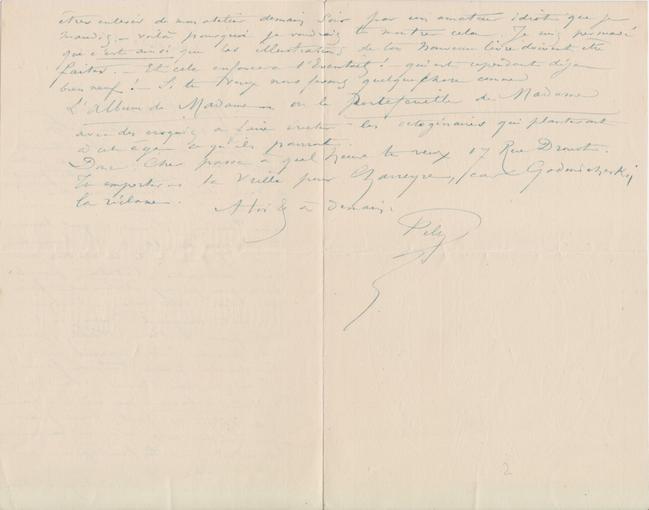 être enlevés de mon atelier demain soir par un amateur idiot que je
maudis – voilà pourquoi je voudrais te montrer cela. Je suis persuadé
que c'est ainsi que les illustrations de ton nouveau livre doivent être
faites. – Et cela enfoncera l' ! qui est cependant déjà
bien neuf ! – Si tu veux nous ferons quelque chose comme
L'album de Madame – ou le portefeuille de Madame
avec des croquis à faire – les octogénaires qui planteront
à cet age ce qu'ils pourront.
Donc Cher passe à quel heure tu veux 17 Rue Drouot.
Tu emporteras la Vrille pour, car
la réclame.
A toi & à demain.
2